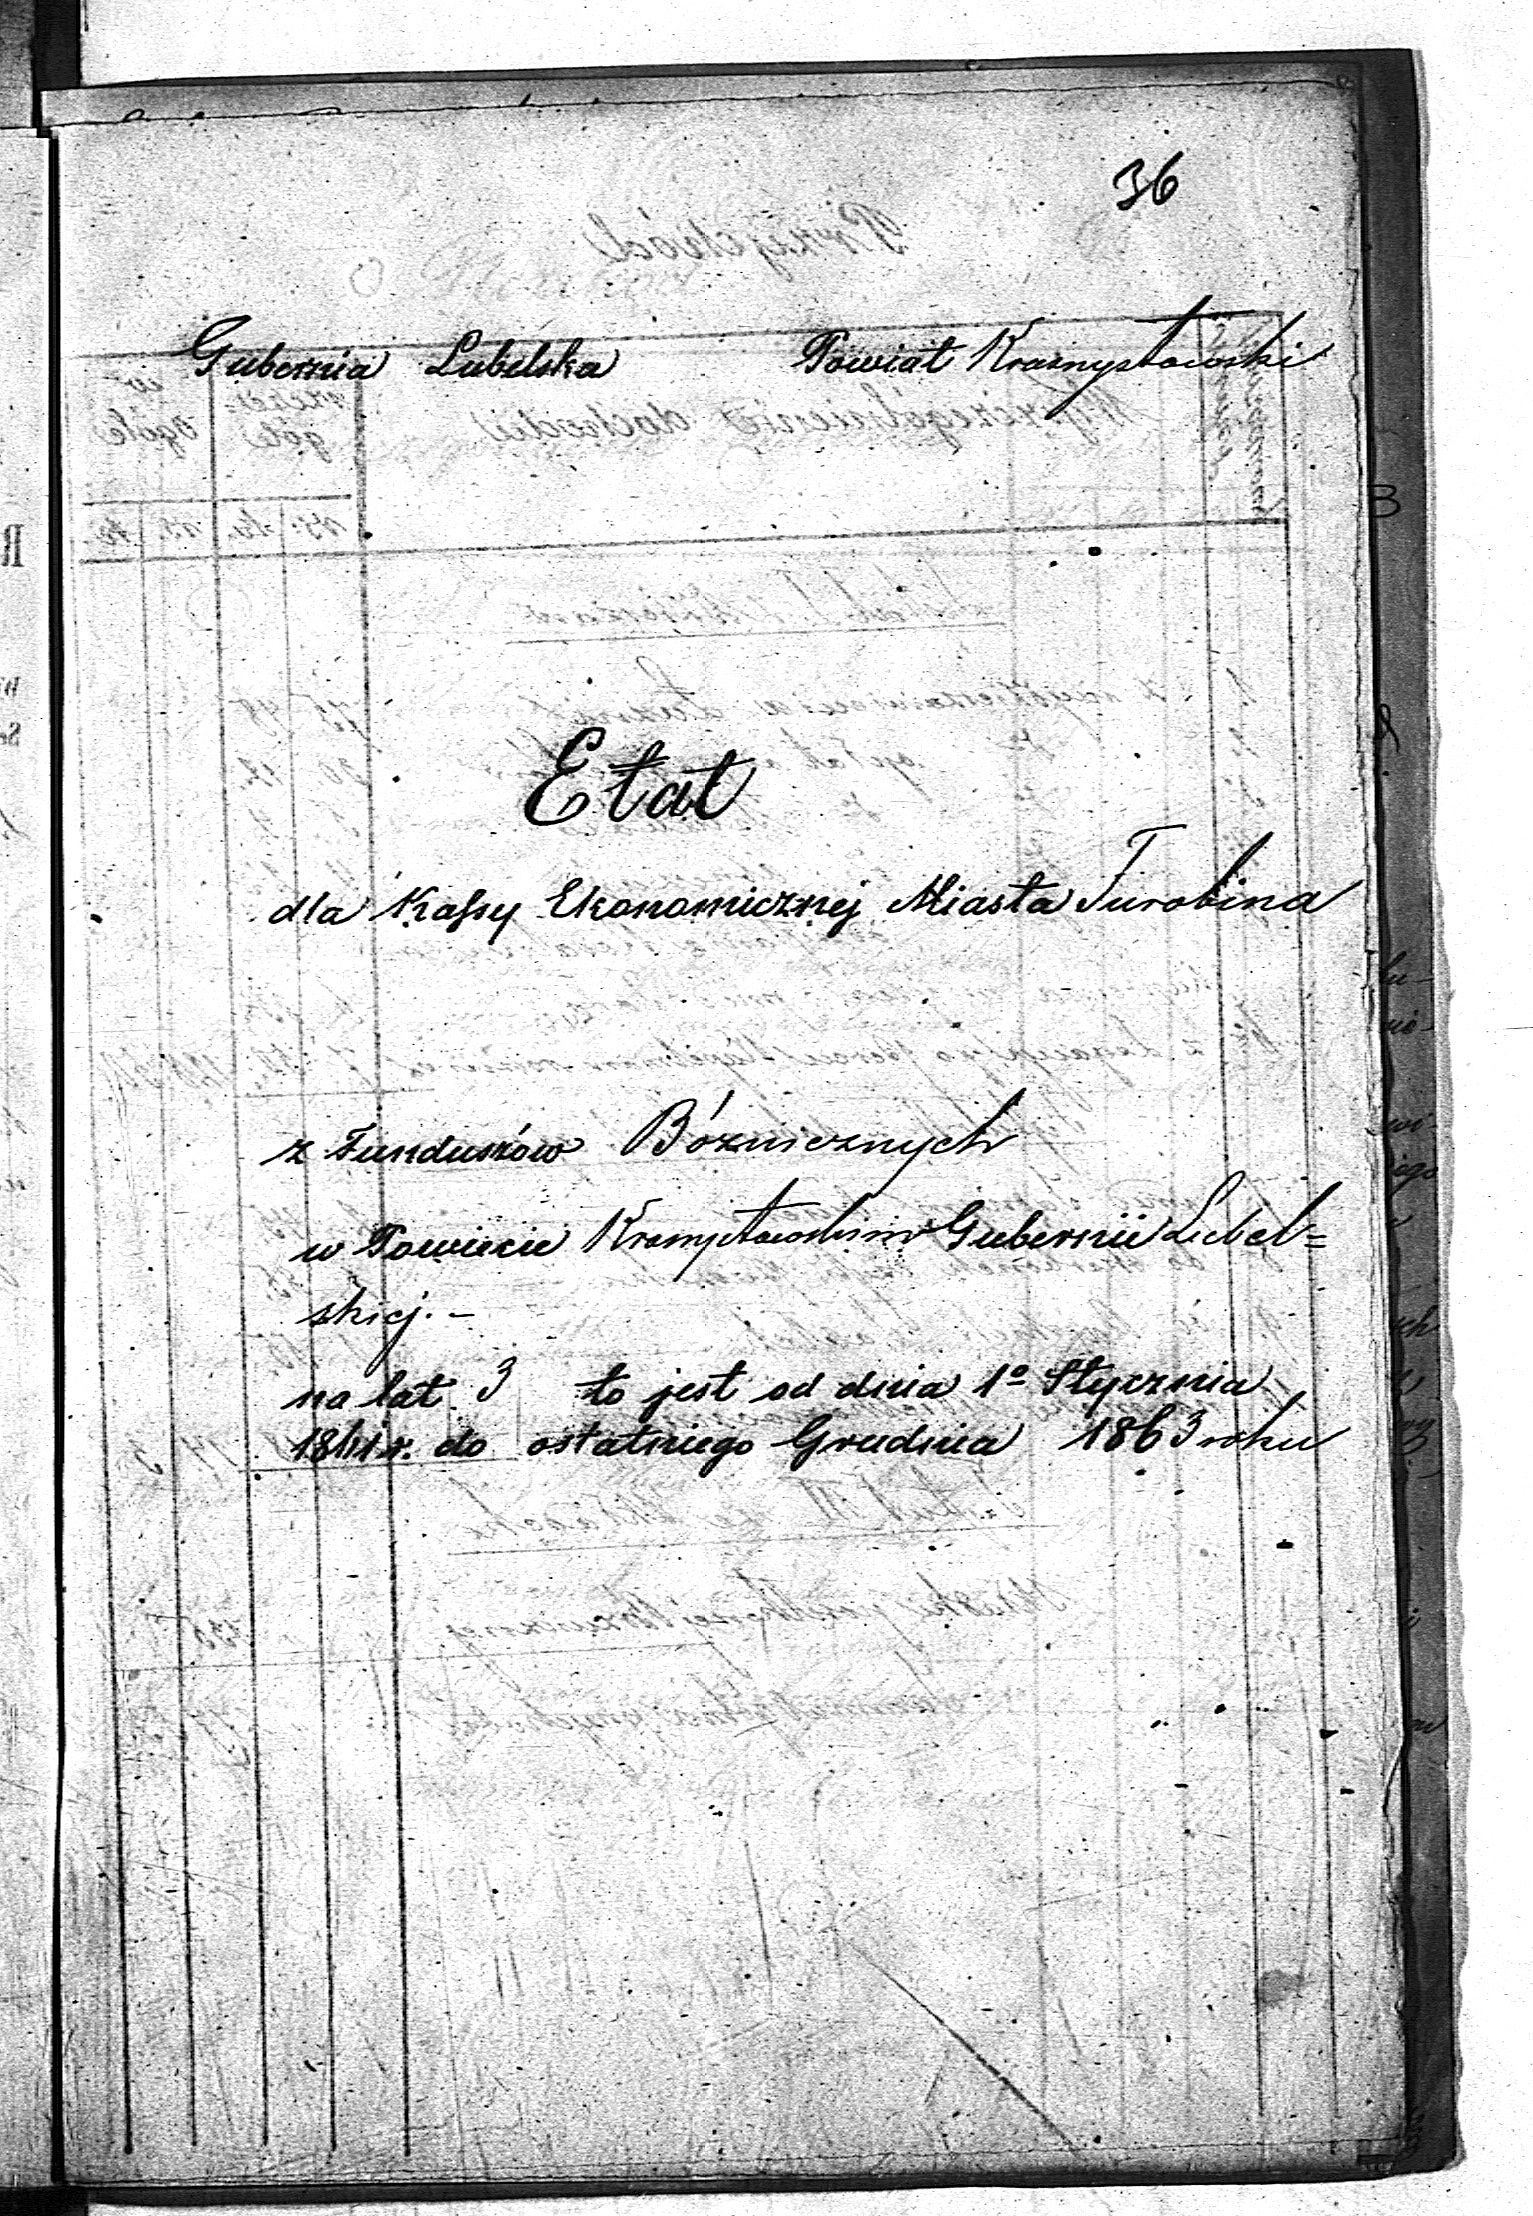 36
Gubernia Lubelska Powiat Krasnystawski
Etat
dla Kassy Ekonomicznej Miasta Turobina
z Funduszów Bóżnicznych
w Powiecie Krasnystawskim Gubernii Lubel=
skiej. –
na lat 3 to jest od dnia 1º Stycznia
1861 r. do ostatniego Grudnia 1863 roku